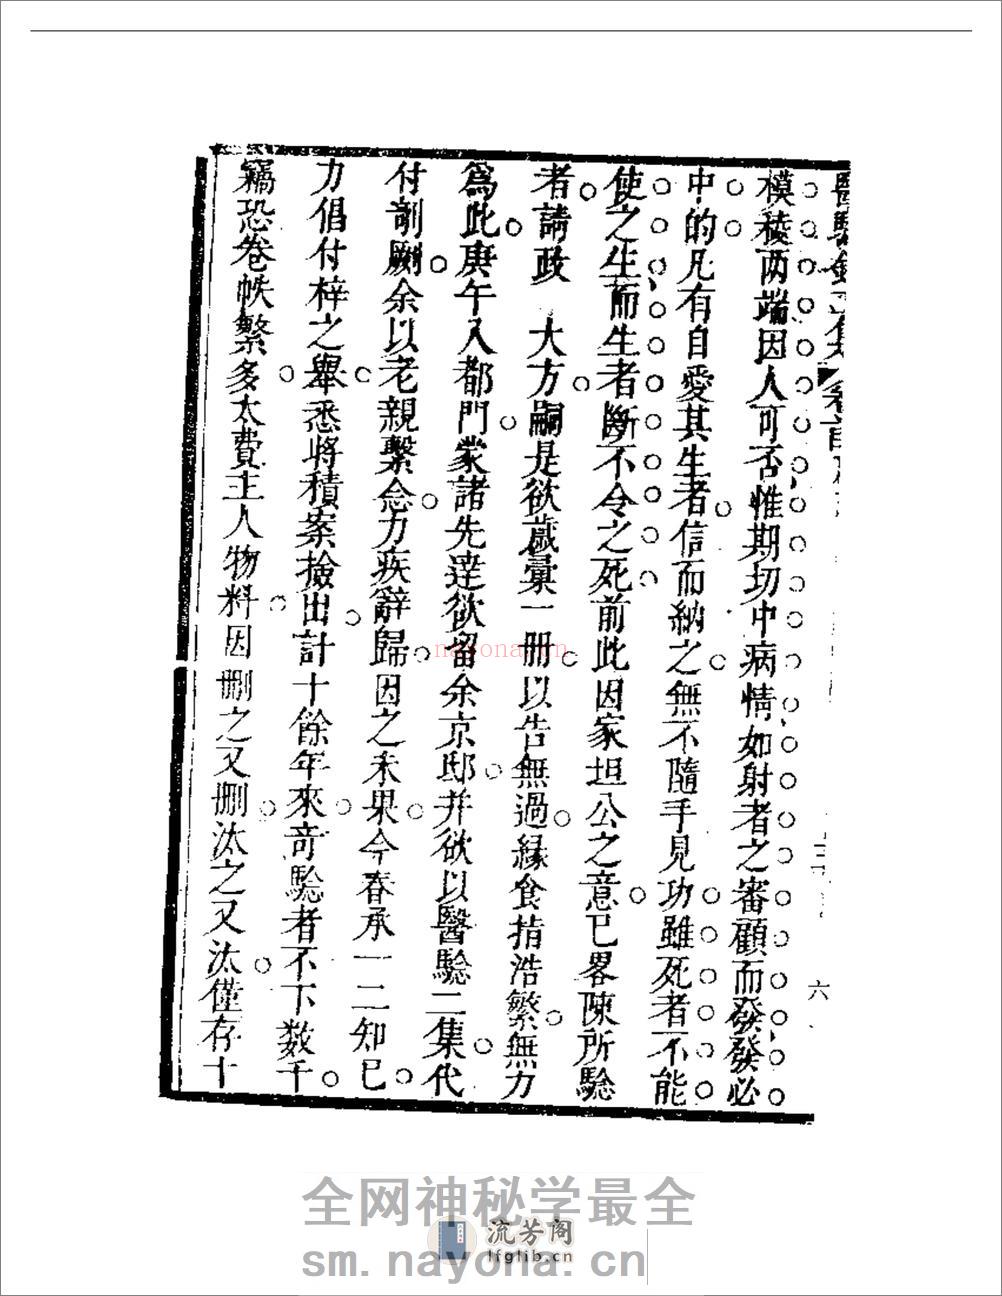 模稜两端因人可否惟期切中病情如射者之審顧而發發必
中的凡有自愛其生者信而納之無不隨手見功雖死者不能
使之生而生者斷不令之死前此因家坦公之意已畧陳所驗
者請政　大方嗣是欲歲彙一冊以告無過緣食指浩繁無力
爲此庚午入都門蒙諸先達欲留余京邸并欲以醫驗二集代
付剞劂余以老親繫念力疾辭歸因之未果今春承一二知己
力倡付梓之舉悉將積案撿出計十餘年來竒驗者不下数千
竊恐卷帙繁多太費主人物料因刪之又刪汰之又汰僅存十
六
nayona.cn
全网神秘学最全
流芳阁
lfglib.cn
sm.nayona.cn